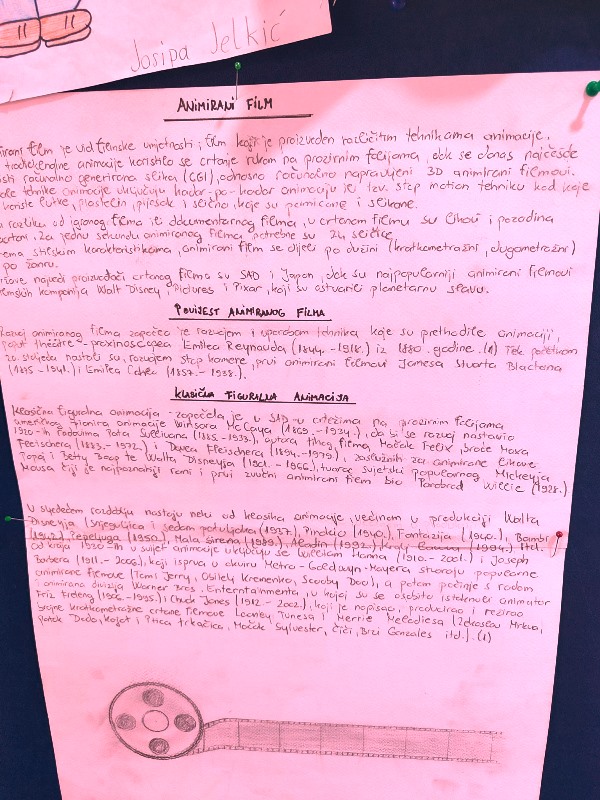 Josipa Jelkić
ANIMIRANI FILM
film je vid filmske umjetnosti, film koji je proizveden različitim tehnikama animacije.
tradicionalne animacije koristilo se crtanje rukom na prozirnim folijama, dok se danas najčešće
računalno generirana slika (CGI), odnosno računalno napravljeni 3D animirani filmovi.
tehnike animacije uključuju kadar-po-kadar animaciju ili tzv. stop motion tehniku kod koje
koriste lutke, plastelin, pijesak i slično, koje su pomicane i slikane.
razliku od igranog filma ili dokumentarnog filma, u crtanom filmu su likovi i pozadina
crtani. Za jednu sekundu animiranog filma potrebne su 24 sličice.
stilskim karakteristikama, animirani film se dijeli po dužini (kratkometražni, dugometražni)
po žanru.
najveći proizvođači crtanog filma su SAD i Japan, dok su najpopularniji animirani filmovi
filmskih kompanija Walt Disney Pictures i Pixar, koji su ostvarili planetarnu slavu.
POVIJEST ANIMIRANOG FILMA
Razvoj animiranog filma započeo je razvojem i uporabom tehnika koje su prethodile animaciji,
poput théâtre-praxinoscopea Emilea Reynauda (1844.-1918.) iz 1880. godine. (1) Tek početkom
20. stoljeća nastali su, razvojem stop kamere, prvi animirani filmovi Jamesa Stuarta Blacktona
(1875.-1941.) i Emilea Cohla (1857.-1938.).
KLASIČNA FIGURALNA ANIMACIJA
Klasična figuralna animacija - započela je u SAD-u crtežima na prozirnim folijama
američkog pionira animacije Winsora McCaya (1869.-1934.), da bi se razvoj nastavio
1920-ih radovima Pata Sullivana (1885.-1933.), autora tihog filma Mačak Felix, braće Maxa
Fleischera (1883.-1972.) i Davea Fleischera (1894.-1979.), zaslužnih za animirane likove
Popaj i Betty Boop te Walta Disneyja (1901.-1966.), tvorca svjetski popularnog Mickeyja
Mousa čiji je najpoznatiji rani i prvi zvučni animirani film bio Parobrod Willie (1928.)
U sljedećem razdoblju nastaju neki od klasika animacije, većinom u produkciji Walta
Disneyja (Snjeguljica i sedam patuljaka (1937.), Pinokio (1940.), Fantazija (1940.), Bambi
(1942.), Pepeljuga (1950.), Mala sirena (1989.), Aladin (1992.), Kralj (1994.) itd.
Od kraja 1930-ih u svijet animacije uključuju se William Hanna (1910.-2001.) i Joseph
Barbera (1911.-2006.), koji isprva u okviru Metro-Goldwyn-Mayera stvaraju popularne
animirane filmove (Tom i Jerry, Obitelj Kremenko, Scooby Doo), a potom počinje s radom
i animirana divizija Warner Bros. Enterntainmenta, u kojoj su se osobito istaknuli animator
Friz Freleng (1906.-1995.) i Chuck Jones (1912.-2002.), koji je napisao, producirao i režirao
brojne kratkometražne crtane filmove Looney Tunesa i Merrie Melodiesa (Zdravko Mrkva,
patak Dodo, Kojot i Ptica trkačica, Mačak Sylvester, Čiči, Brzi Gonzales itd.). (1)